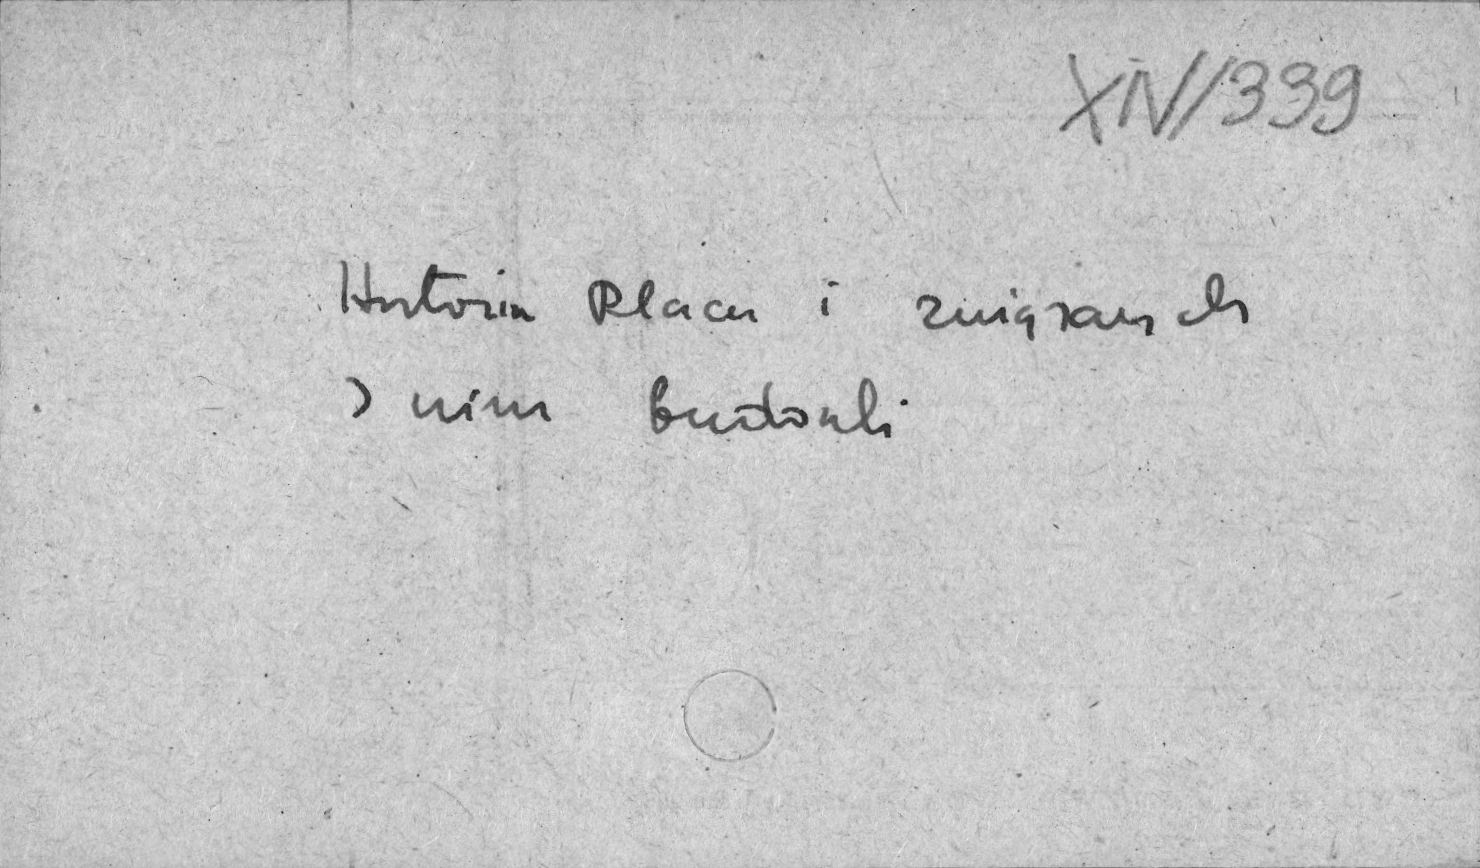 XIV/339
Historia Placu i związanych
z nim budowli